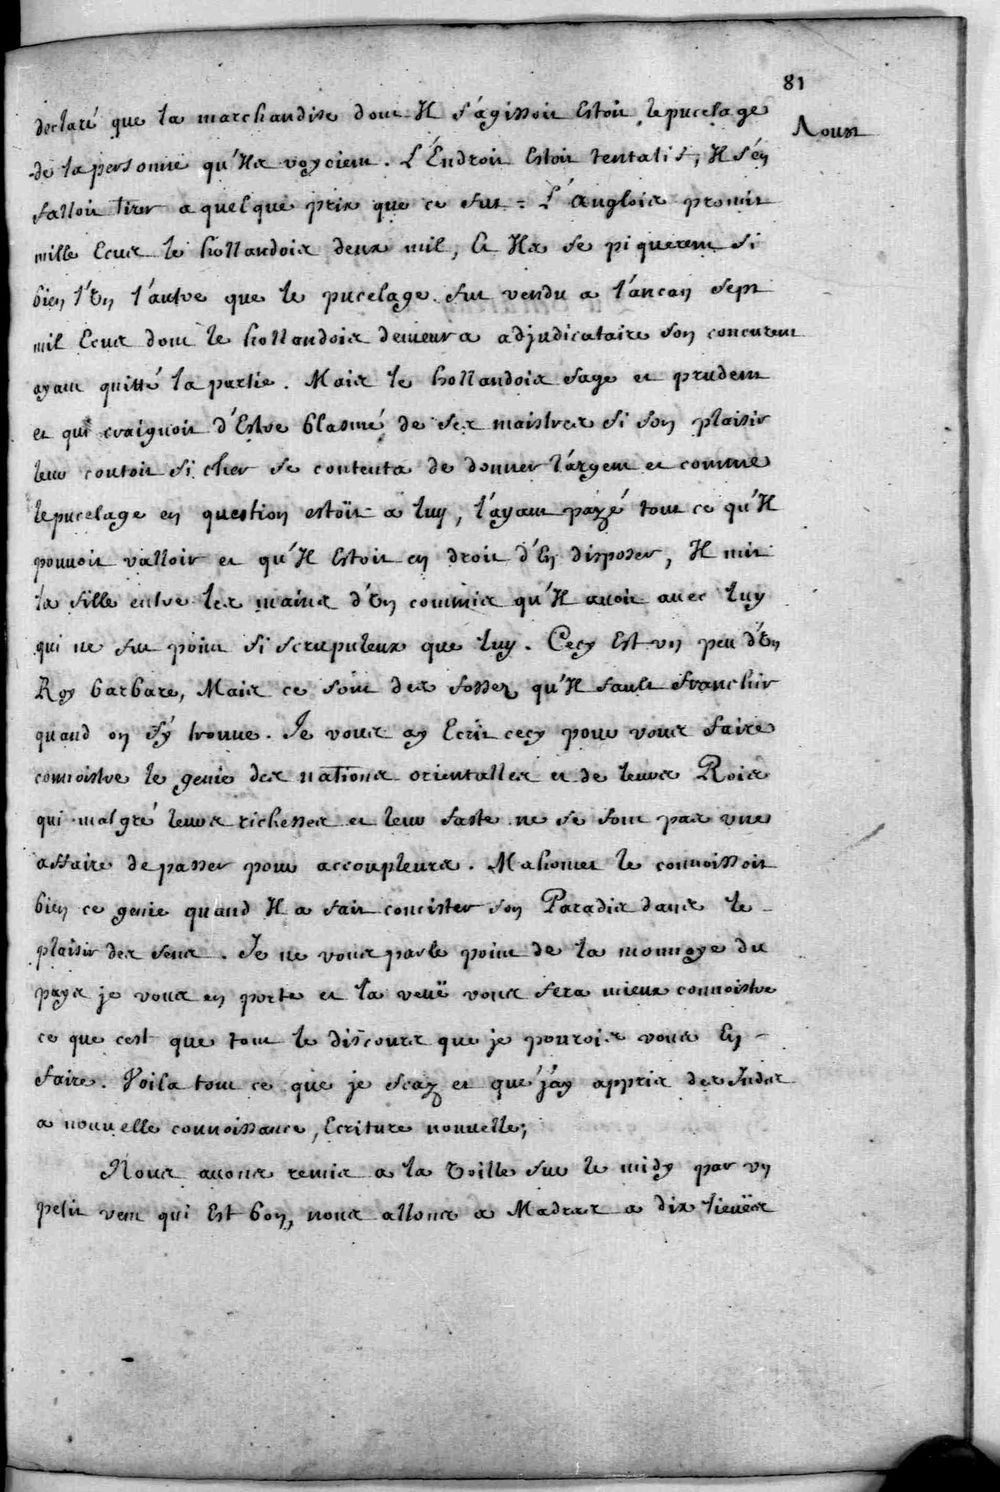 81
Aoust
declaré que la marchandise dont Il s'agissoit Estoit le pucelage
de la personne qu'Ils voyoient. L'Endroit Estoit tentatif, Il s'en
falloit tirer a quelque prix que ce fut. L'anglois promit
mille Ecus le hollandois deux mil, Et Ils se piquerent si
bien l'Un l'autre que le pucelage fut vendu a l'ancan sept
mil Ecus dont le hollandois demeura adjudicataire son concurent
ayant quitté la partie. Mais le hollandois sage et prudent
et qui craignoit d'Estre blasmé de ses maistres si son plaisir
leur coutoit si cher se contenta de donner l'argent et comme
le pucelage en question estoit a luy, l'ayant payé tout ce qu'Il
pouuoit valloir et qu'Il Estoit en droit d'En disposer, Il mit
la fille entre les mains d'Un commis qu'Il auoit auec luy
qui ne fut point si scrupuleux que luy. Cecy Est un peu d'Un
Roy barbare, Mais ce sont des fossez qu'Il fault franchir
quand on s'y trouue. Je vous ay Ecrit cecy pour vous faire
connoistre le genie des nations orientalles et de leurs Rois
qui malgré leurs richesses et leur faste ne se font pas une
affaire de passer pour accoupleurs. Mahomet le connoissoit
bien ce genie quand Il a fait concister son Paradis dans le
plaisir des sens. Je ne vous parle point de la monnoye du
pays je vous en porte et la veuë vous fera mieux connoistre
ce que cest que tout le discours que je pourois vous En
faire. Voila tout ce que je scay et que j'ay appris des Indes
a nouuelle connoissance, Ecriture nouuelle;
Nous auons remis a la Voille sur le midy par un
petit vent qui Est bon, nous allons a Madras a dix lieuës